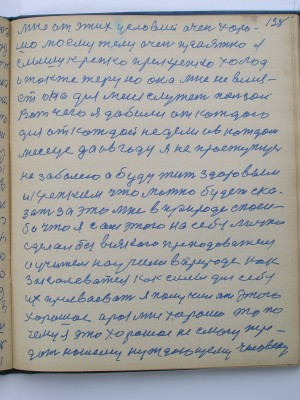 138
мне от этих условий очен хоро-
шо моему телу очен приятно я
слышу крепко природно холод
а также жеру но она мне не вли-
ст она для меня служет ползой
вот чего я добился от каждого
дня от каждой недели и в каждом
месеце да в году я не простужус
не заболею а буду жит здоровым
и крепким что можно будет ска-
зат за это мне в природе спаси-
бо что я сам этого на себе лично
сделался всякого преподователя
и учителя научился в природе как
закаляватся как силы для себя
их принимат я получил от этого
хорошее раз мне хорошо то по
чему я это хорошое не смогу пре-
дат нашему нуждающему человеку